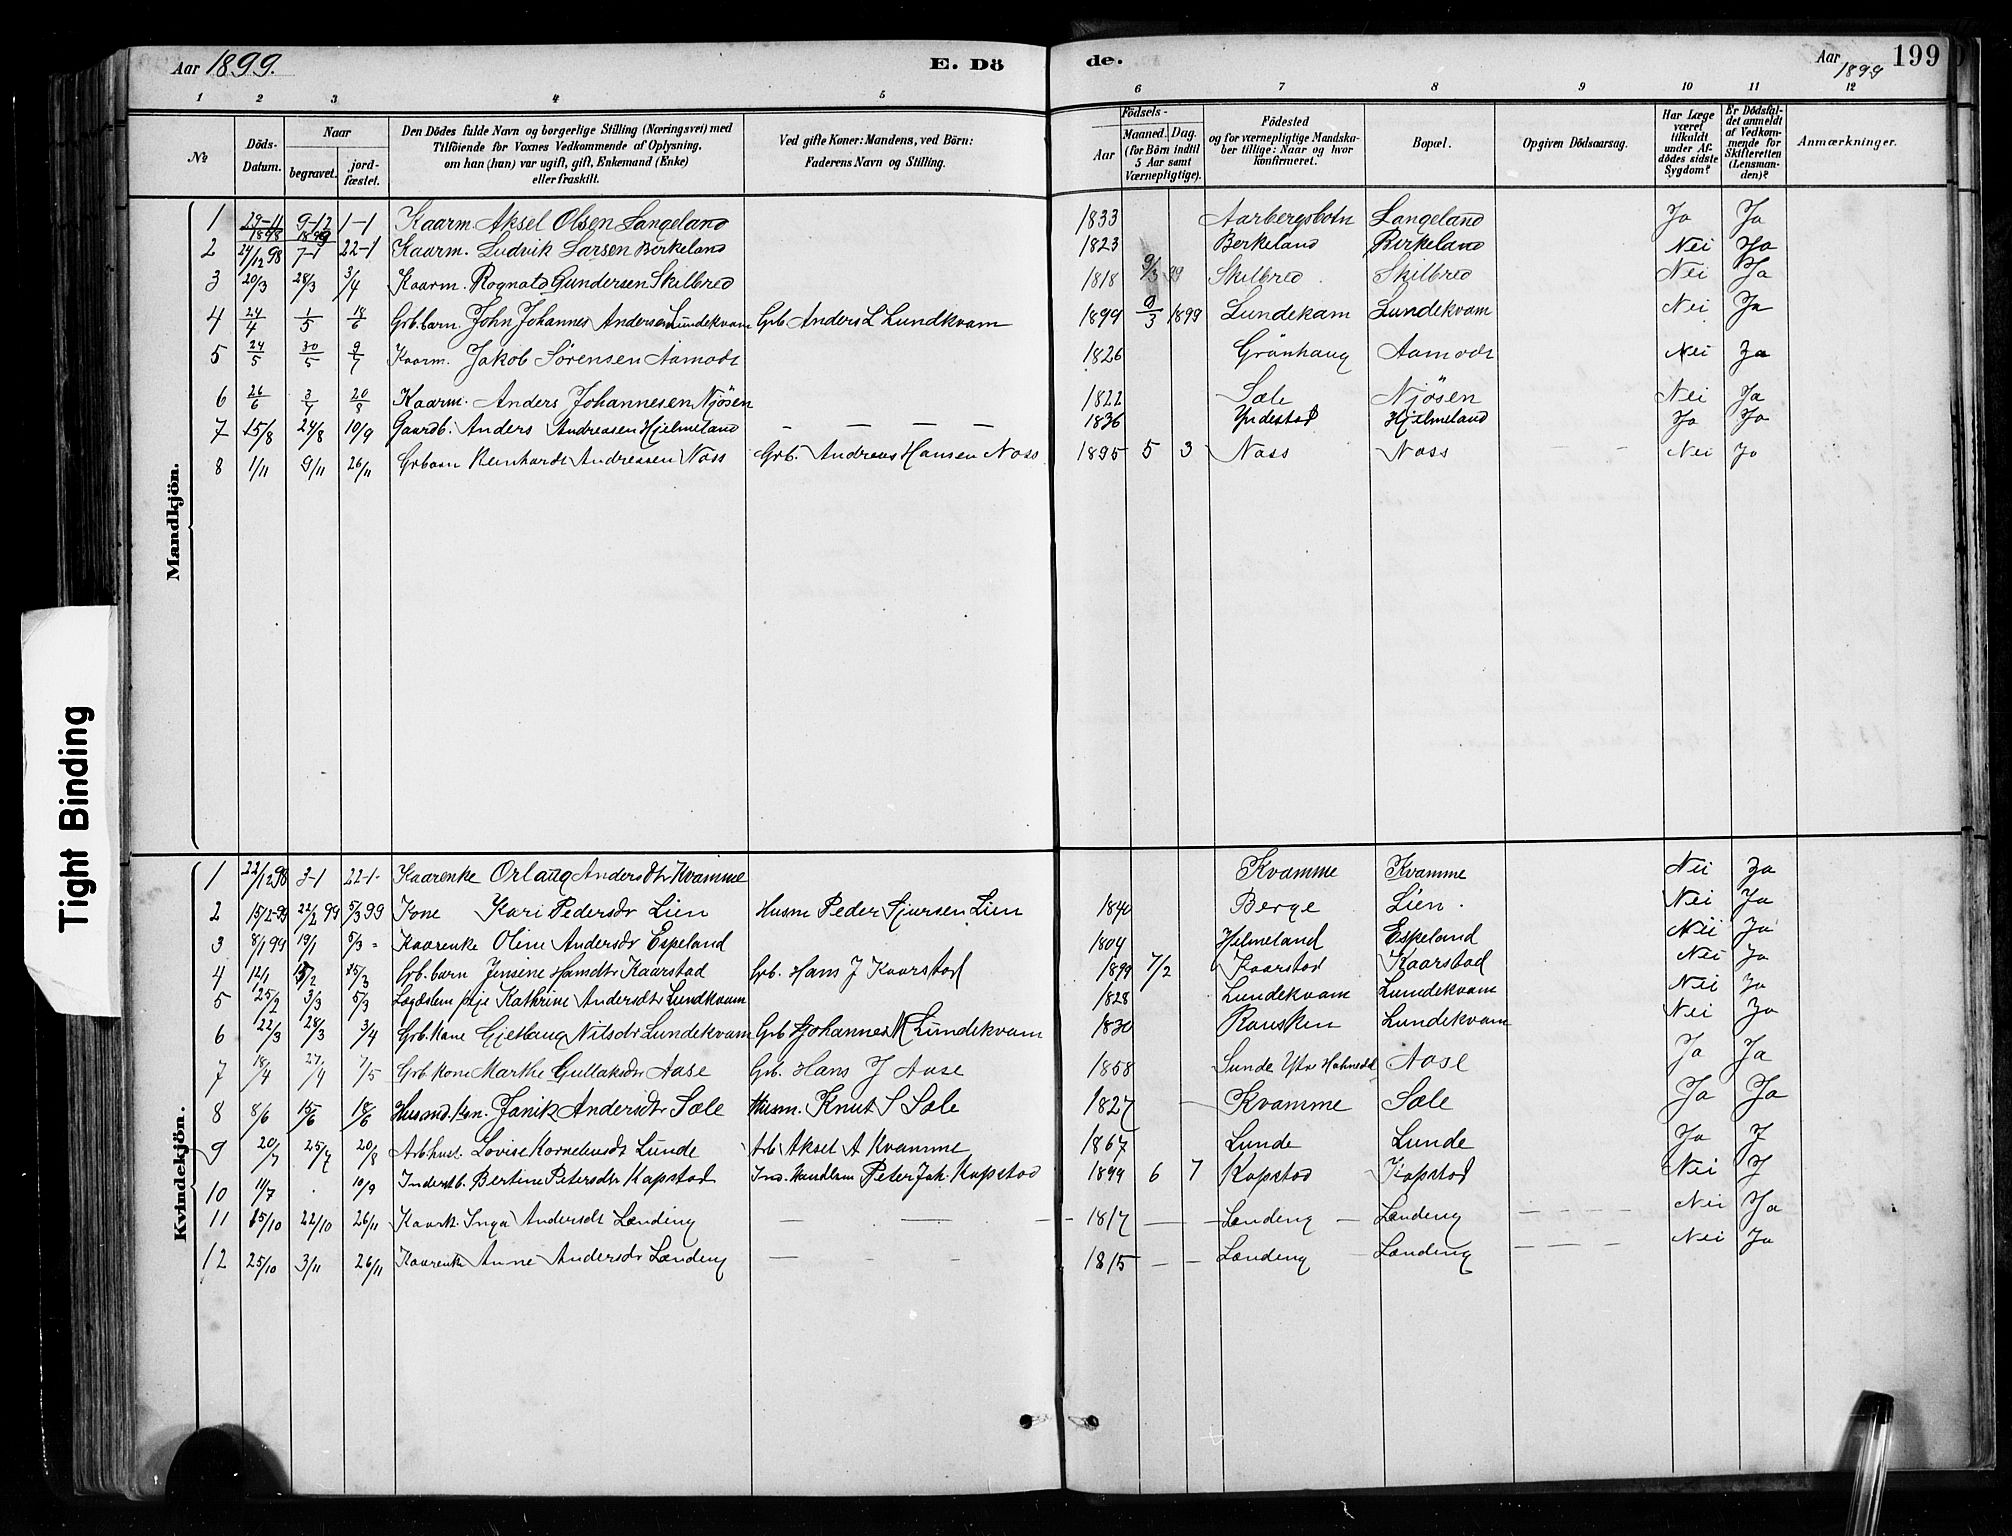 Aar 1899. E. Dö de. Aar 1899 199
1 2 3 4 5 6 7 8 9 10 11 12
№ Döds-Datum. Naar begravet. jord-fæstet. Den Dödes fulde Navn og borgerlige Stilling (Næringsvei) med Tilföiende for Voxnes Vedkommende af Oplysning, om han (hun) var ugift, gift, Enkemand (Enke) eller fraskilt. Ved gifte Koner: Mandens, ved Börn: Faderens Navn og Stilling. Födsels- Aar Maaned. Dag. (for Börn indtil 5 Aar samt Værnepligtige). Födested og for værnepligtige Mandska-ber tillige: Naar og hvor konfirmeret. Bopæl. Opgiven Dödsaarsag. Har Læge været tilkaldt under Af-dödes sidste Sygdom? Er Dödsfal-det anmeldt af Vedkom-mende for Skifteretten (Lensman-den)? Anmærkninger.
Mandkjön.
1 29-11 1898 9-12 1898 1-1 Kaarm. Aksel Olsen Langeland 1833 Aarbergsbotn Langeland Ja Ja
2 24/12 98 7-1 22-1 Kaarm. Ludvik Larsen Berkeland 1823 Berkeland Birkeland Nei Ja
3 20/3 28/3 3/4 Kaarm. Rognald Gundersen Skilbred 1818 9/3 99 Skilbred Skilbred Nei Ja
4 24/4 1/5 18/6 Grb.barn. John Johannes Andersen Lundekvam Grb. Anders L Lundkvam 1899 9/3 1899 Lundekam Lundekvam Nei Ja
5 24/5 30/5 9/7 Kaarm. Jakob Sörensen Aamodt 1826 Grönhaug Aamodt Nei Ja
6 26/6 3/7 20/8 Kaarm. Anders Johannesen Njösen 1822 Sæle Njösen Nei Ja
7 15/8 24/8 10/9 Gaardb. Anders Andreasen Hjelmeland — — — — 1836 Yndestad Hjelmeland Ja Ja
8 1/11 9/11 26/11 Grbarn Reinhardt Andreasen Nass Grb. Andreas Hansen Nass 1895 5 3 Nass Nass Nei Ja
Kvindekjön.
1 22/12 98 3-1 22-1- Kaarenke Orlaug Andersdtr Kvamme Kvamme Kvamme Nei Ja
2 15/2 99 22/2 99 5/3 99 Kone Kari Pedersdr Lien Husm Peder Sjursen Lien 1840 Berge Lien. Nei Ja
3 8/1 99 19/1 5/3 - Kaarenke Oline Andersdr Espeland 1804 Helmeland Espeland Nei Ja
4 12/2 15/2 25/3 Grb. barn Jensine Hansdtr Kaarstad Grb. Hans J Kaarstad 1899 7/2 Kaarstad Kaarstad Nei Ja
5 25/2 3/3 5/3 Lægdslem pige Kathrine Andersdtr Lundkvam 1828 Lundekvam Lundekvam Nei Ja
6 22/3 28/3 3/4 Grb. Kone Gjetlaug Nilsdr Lundekvam Grb Johannes M Lundekvam 1830 Rausken Lundekvam Nei Ja
7 18/4 27/4 7/5 Grb. Kone Marthe Gullaksdr Aase Grb. Hans J Aase 1858 Sunde Ytre Holmedal Aase Ja Ja
8 8/6 15/6 18/6 Husmd. kon. Janik Andersdtr Sæle Husm. Knut S Sæle 1827 Kvamme Sæle Ja Ja
9 20/7 25/7 20/8 Arb.hust. Lovise Korneliusdt Lunde Arb Aksel A Kvamme 1867 Lunde Lunde Ja J
10 11/7 . 10/9 Inderstb. Bertine Petersdtr Kapstad Ind. Handlem Peter Joh. Kapstad 1899 6 7 Kapstad Kapstad Nei J
11 15/10 22/10 26/11 Kaark. Inga Andersdt Lænding — — — 1817 — — Lænding — Lænding Nei Ja
12 25/10 3/11 26/11 Kaarenke Anne Andersdr Lænding — — 1815 — — Lænding Lænding Nei Ja
Tight Binding